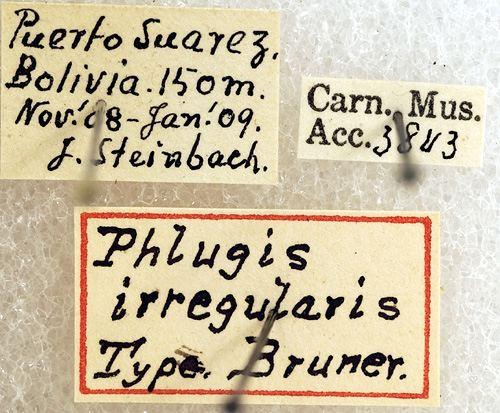 Puerto Suarez,
Bolivia. 150m.
Nov.'08-Jan.'09.
J. Steinbach.
Carn. Mus.
Acc. 3843
Phlugis
irregularis
Type. Bruner.